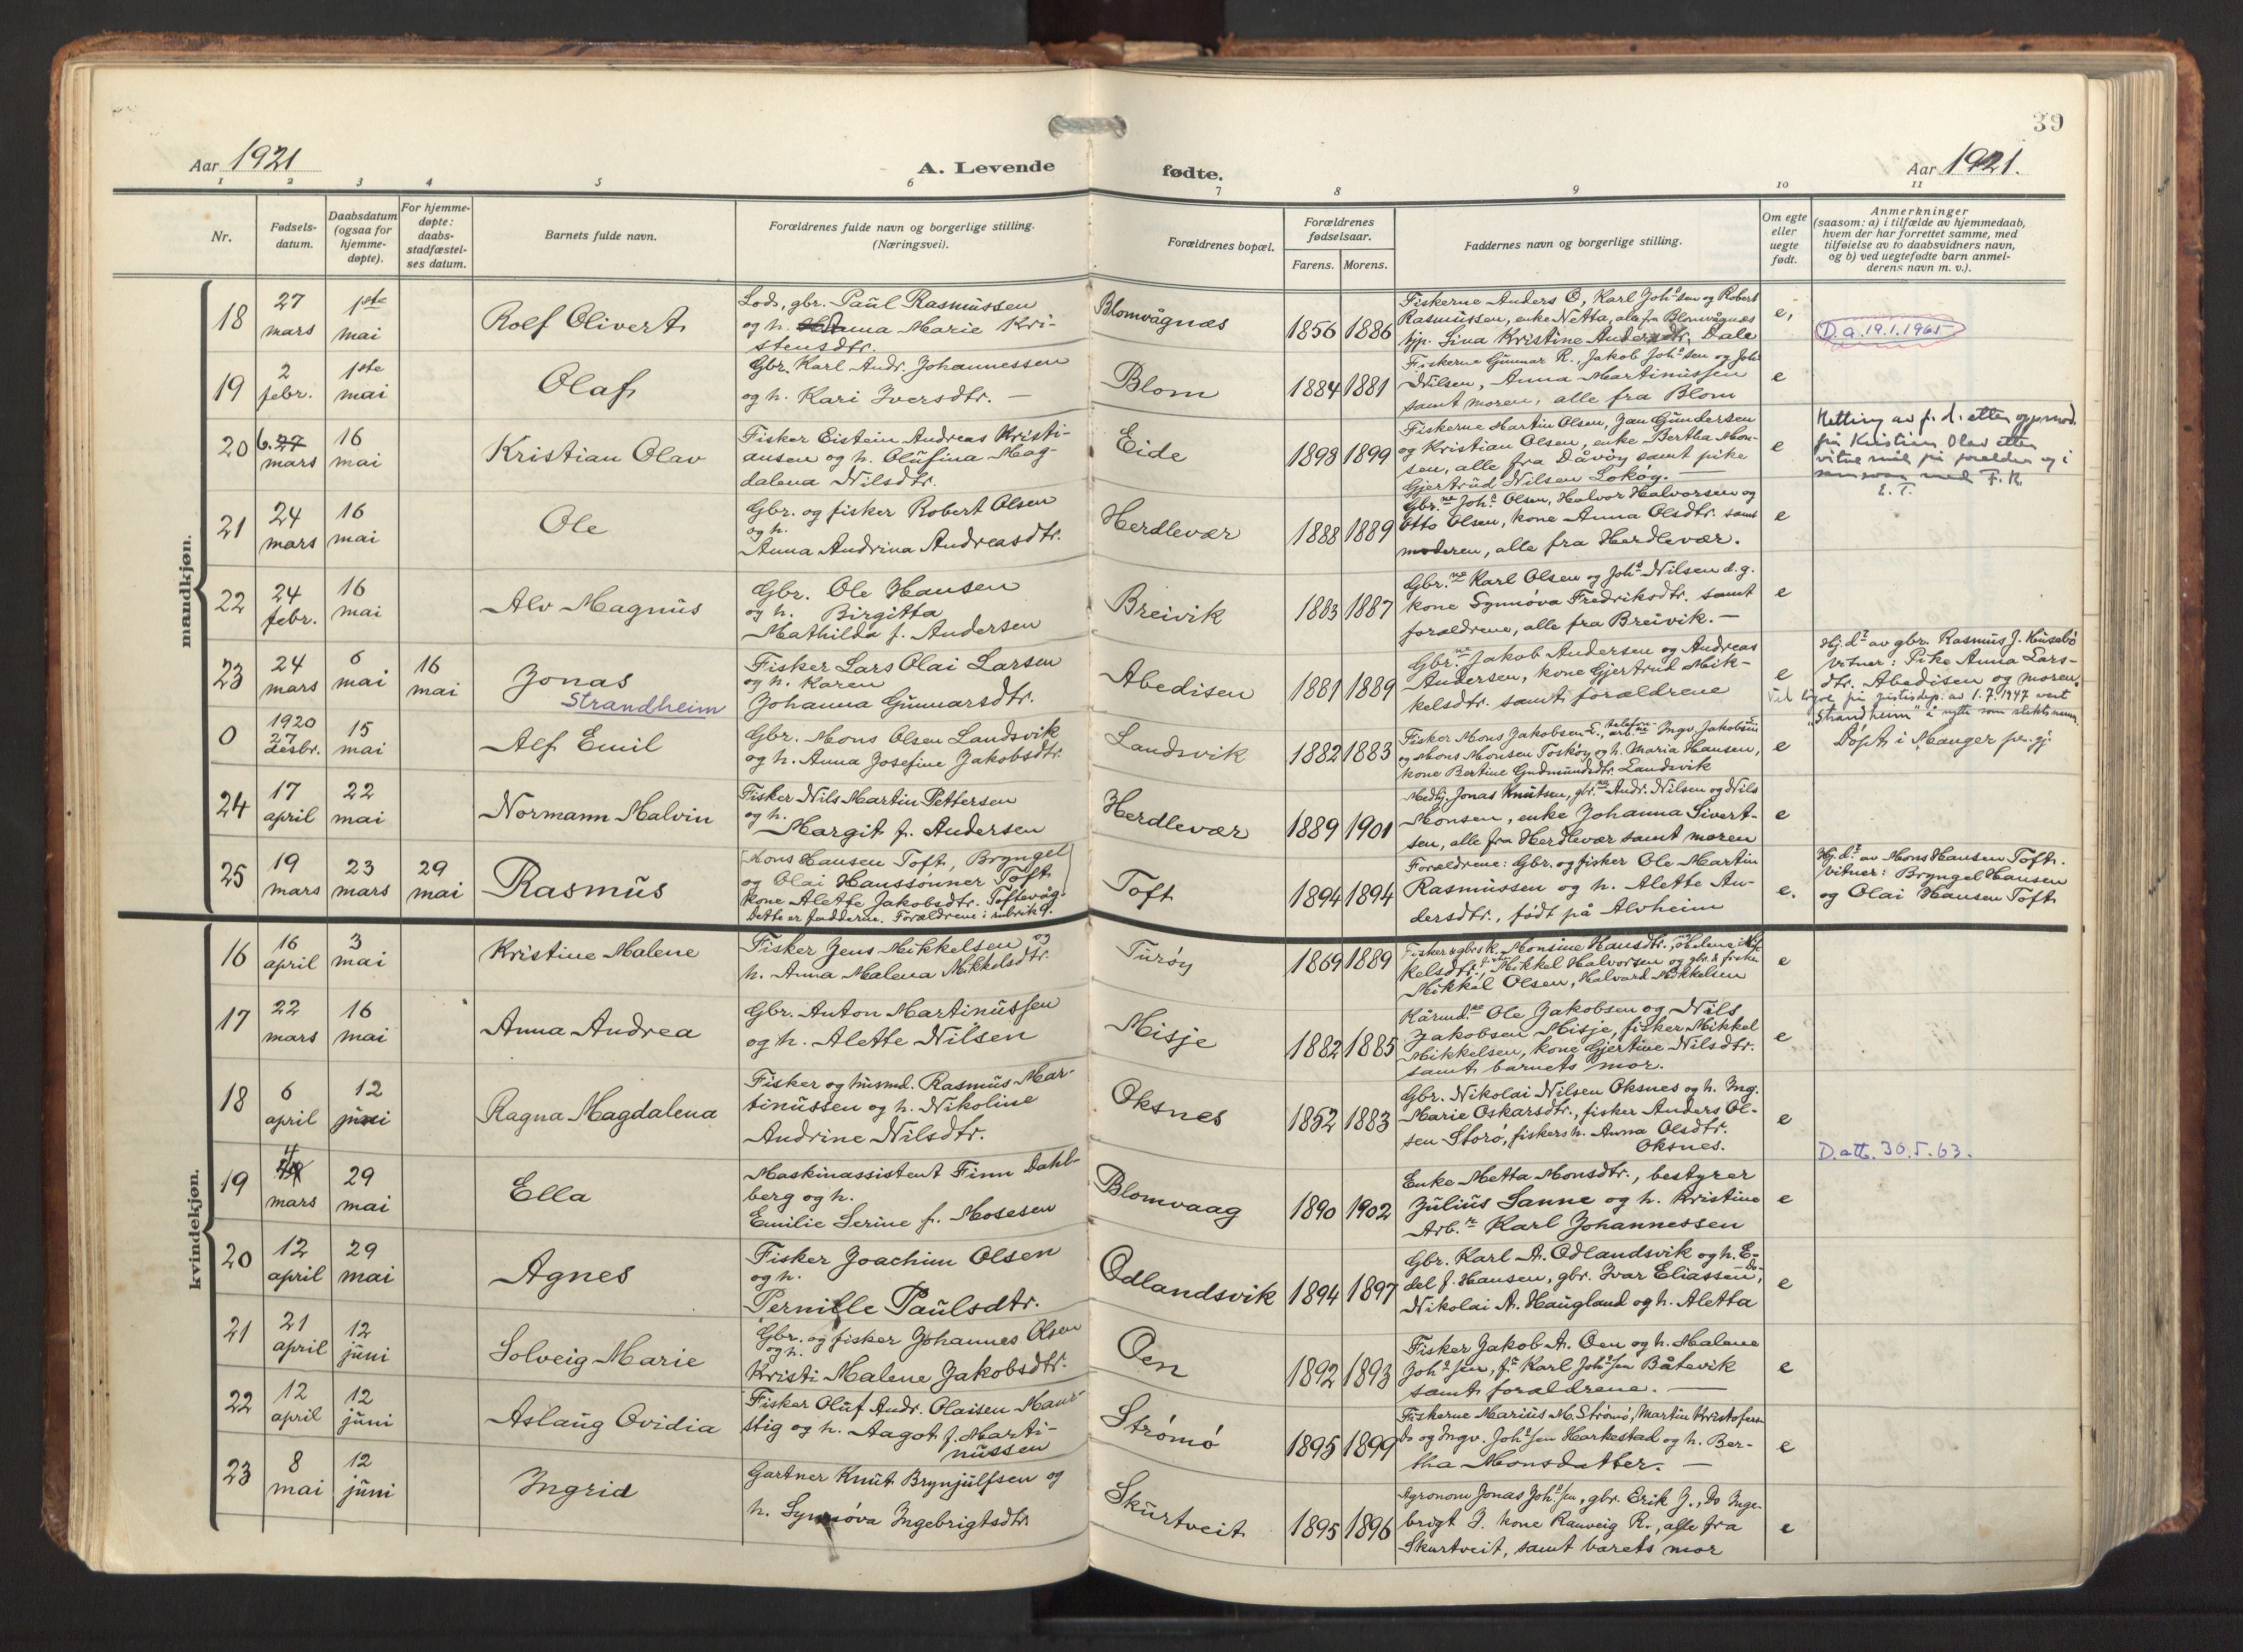 39
Aar 1921
A. Levende
fødte.
Aar 1921.
1 2 3 4 5 6 7 8 9 10 11
Nr.
Fødsels-
datum.
Daabsdatum
(ogsaa for
hjemme-
døpte).
For hjemme-
døpte:
daabs-
stadfæstel-
ses datum.
Barnets fulde navn.
Forældrenes fulde navn og borgerlige stilling.
(Næringsvei).
Forældrenes bopæl.
Forældrenes
fødselsaar.
Farens. Morens.
Faddernes navn og borgerlige stilling.
Om egte
eller
uegte
født.
Anmerkninger
(saasom: a) i tilfælde av hjemmedaab,
hvem der har forrettet samme, med
tilføielse av to daabsvidners navn,
og b) ved uegtefødte barn anmel-
derens navn m. v.).
mandkjøn.
18
27
mars
1ste
mai
Rolf Olivert
Lods, gbr. Paul Rasmussen
og h. Anna Marie Kri-
stensdtr.
Blomvågnæs
1856 1886
Fiskerne Anders O, Karl Johssen og Robert
Rasmussen, enke Netta, alle fra Blomvågnæs
tjp. Lina Kristine Andersdtr. Dale
e,
D.a. 19.1.1965
19
2
febr.
1ste
mai
Olaf
Gbr. Karl Andr. Johannessen
og h. Kari Iversdtr. —
Blom
1884 1881
Fiskerne Gunnar R., Jakob Johssen og Joh
Nilsen, Anna Martinussen
samt moren, alle fra Blom
e
20
6. 27
mars
16
mai
Kristian Olav
Fisker Eistein Andreas Kristi-
ansen og h. Olufina Mag-
dalena Nilsdtr.
Eide
1898 1899
Fiskerne Martin Olsen, Jan Gundersen
og Kristian Olsen, enke Bertha Mon-
sen, alle fra Dåvøy samt pike
Gjertrud Nilsen Lokøy. —
e
Retting av f. d. etter oppmod.
frå Kristian Olav etter
vitnemål frå foreldre og i
samsvar med F. R.
E. T.
21
24
mars
16
mai
Ole
Gbr. og fisker Robert Olsen
og h.
Anna Andrina Andreasdtr.
Herdlevær
1888 1889
Gbr.ne Johs Olsen, Halvor Halvorsen og
Otto Olsen, kone Anna Olsdtr. samt
moderen, alle fra Herdlevær.
e
22
24
febr.
16
mai
Alv Magnus
Gbr. Ole Hansen
og h. Birgitta
Mathilda f. Andersen
Breivik
1883 1887
Gbr.ne Karl Olsen og Johs Nilsen d. g.
kone Synnøva Fredriksdtr. samt
forældrene, alle fra Breivik. —
e
23
24
mars
6
mai
16
mai
Jonas
Strandheim
Fisker Lars Olai Larsen
og h. Karen
Johanna Gunnarsdtr.
Abedisen
1881 1889
Gbr.ne Jakob Andersen og Andreas
Andersen, kone Gjertrud Mik-
kelsdtr. samt forældrene
e
Hj. dt av gbr. Rasmus J. Husebø
Vitner: Pike Anna Lars-
dtr. Abedisen og moren.
Ved løyve frå justisdep. av 1.7.1947 vert
"Strandheim" å nytte som slektsnamn.
0
1920
27
desbr.
15
mai
Alf Emil
Gbr. Mons Olsen Landsvik
og h. Anna Josefine Jakobsdtr.
Landsvik
1882 1883
Fisker Mons Jakobsen L., telefon-arb. Ingv. Jakobsen
og Mons Monsen Toskøy og h. Maria Hansen,
kone Bertine Gudmundsdtr. Landsvik
e
Døpt i Manger pr.gj.
24
17
april
22
mai
Normann Malvin
Fisker Nils Martin Pettersen
og h.
Margit f. Andersen
Herdlevær
1889 1901
Medhj. Jonas Knutsen, gbr.ne Andr. Nilsen og Nils
Monsen, enke Johanna Sivert-
sen, alle fra Herdlevær samt moren
e
25
19
mars
23
mars
29
mai
Rasmus
Mons Hansen Toft, Bryngel
og Olai Hanssønner Toft
kone Alette Jakobsdtr. Toftevåg.
Dette er faddern. Forældrene i rubrik 9.
Toft
1894 1894
Forældrene: Gbr. og fisker Ole Martin
Rasmussen og h. Alette An-
dersdtr., født på Alvheim
e.
Hj. dt av Mons Hansen Toft.
Vitner: Bryngel Hansen
og Olai Hansen Toft
kvindekjøn.
16
16
april
3
mai
Kristine Malene
Fisker Jens Mikkelsen og
h. Anna Malena Mikkelsdtr.
Turøy
1869 1889
Fisker & gbrs k. Monsine Hansdtr., Malene Mik-
kelsdtr., Mikkel Halvorsen og gbr. & fisker
Mikkal Olsen, Halvard Mikkelsen
e
17
22
mars
16
mai
Anna Andrea
Gbr. Anton Martinussen
og h. Alette Nilsen
Misje
1882 1885
Kårmd.ne Ole Jakobsen og Nils
Jakobsen Misje, fisker Mikkel
Mikkelsen, kone Gjertine Nilsdtr.
samt barnets mor.
e
18
6
april
12
juni
Ragna Magdalena
Fisker og husmd. Rasmus Mar-
tinussen og h. Nikoline
Andrine Nilsdtr.
Oksnes
1852 1883
Gbr. Nikolai Nilsen Oksnes og h. Ing.
Marie Oskarsdtr., fisker Anders Ol-
sen Storø, fiskers h. Anna Olsdtr.
Oksnes.
e
19
4
mars
29
mai
Ella
Maskinassistent Finn Dahl-
berg og h.
Emilie Serine f. Mosesen
Blomvaag
1890 1902
Enke Metta Monsdtr., bestyrer
Julius Sanne og h. Kristine
Arb.r Karl Johannessen
e
D.att. 30.5.63.
20
12
april
29
mai
Agnes
Fisker Joachim Olsen
og h.
Pernille Paulsdtr.
Odlandsvik
1894 1897
Gbr. Karl A. Odlandsvik og h. E-
del f. Hansen, gbr. Ivar Eliassen, Do-
Nikolai A. Haugland og h. Aletta
e
21
21
april
12
juni
Solveig Marie
Gbr. og fisker Johannes Olsen
og h.
Kristi Malene Jakobsdtr.
Oen
1892 1893
Fisker Jakob A. Oen og h. Malene
Johssen, fr Karl Johssen Båtevik
samt forældrene. —
e
22
12
april
12
juni
Aslaug Ovidia
Fisker Oluf Andr. Olaisen Mans-
stig og h. Aagot f. Marti-
nussen
Strømø
1895 1899
Fiskerne Marius M. Strømø, Martin Kristofersen
Do og Ingv. Johssen Harkestad og h. Ber-
tha Monsdatter. —
e
23
8
mai
12
juni
Ingrid
Gartner Knut Brynjulfsen og
h. Synnøva Ingebrigtsdtr.
Skurtveit
1895 1896
Agronom Jonas Johssen, gbr. Erik J., Do Inge-
brigt J. kone Ranveig R., alle fra
Skurtveit, samt barets mor
e